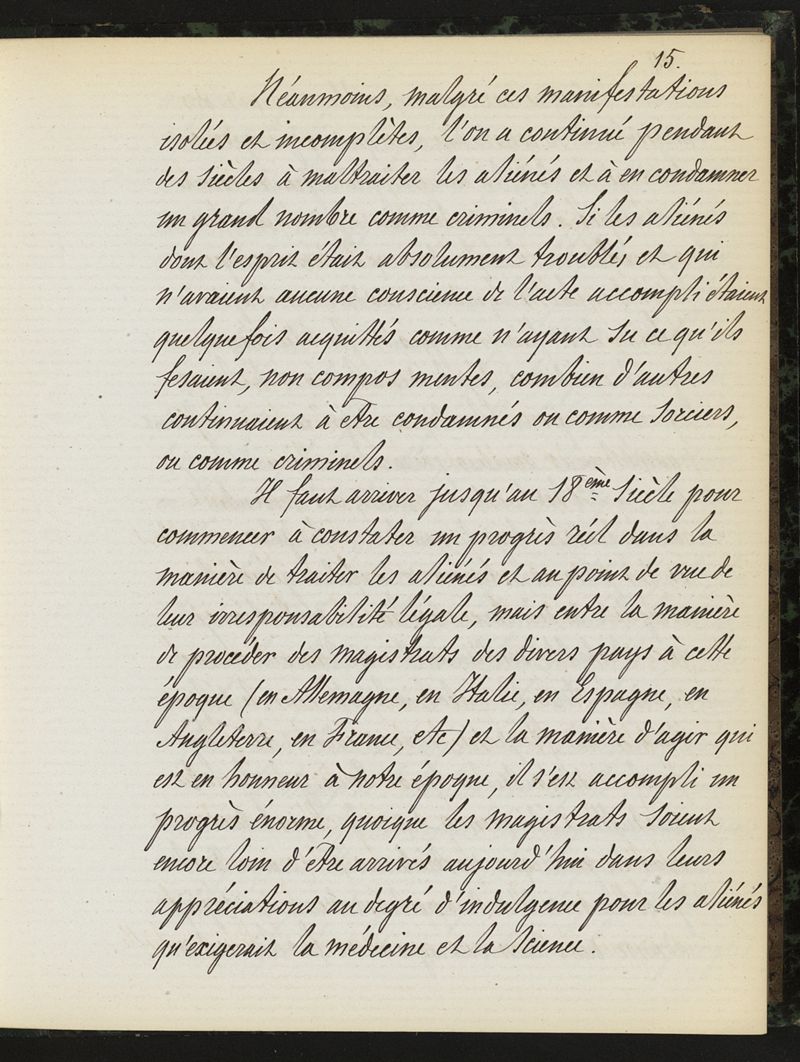 15.
Néanmoins, malgré ces manifestations
isolées et incomplètes, l'on a continué pendant
des siècles à maltraiter les aliénés et à en condamner
un grand nombre comme criminels. Si les aliénés
dont l'esprit était absolument troublé, et qui
n'avaient aucune conscience de l'acte accompli étaient
quelquefois acquittés comme n'ayant su ce qu'ils
fesaient, non compos mentes, combien d'autres
continuaient à être condamnés ou comme sorciers,
ou comme criminels.
Il faut arriver jusqu'au 18ème siècle pour
commencer à constater un progrès réel dans la
manière de traiter les aliénés et au point de vue de
leur irresponsabilité légale, mais entre la manière
de procéder des magistrats des divers pays à cette
époque (en Allemagne, en Italie, en Espagne, en
Angleterre, en France, etc) et la manière d'agir qui
est en honneur à notre époque, il s'est accompli un
progrès énorme, quoique les magistrats soient
encore loin d'être arrivés aujourd'hui dans leurs
appréciations au degré d'indulgence pour les aliénés
qu'exigerait la médecine et la science.